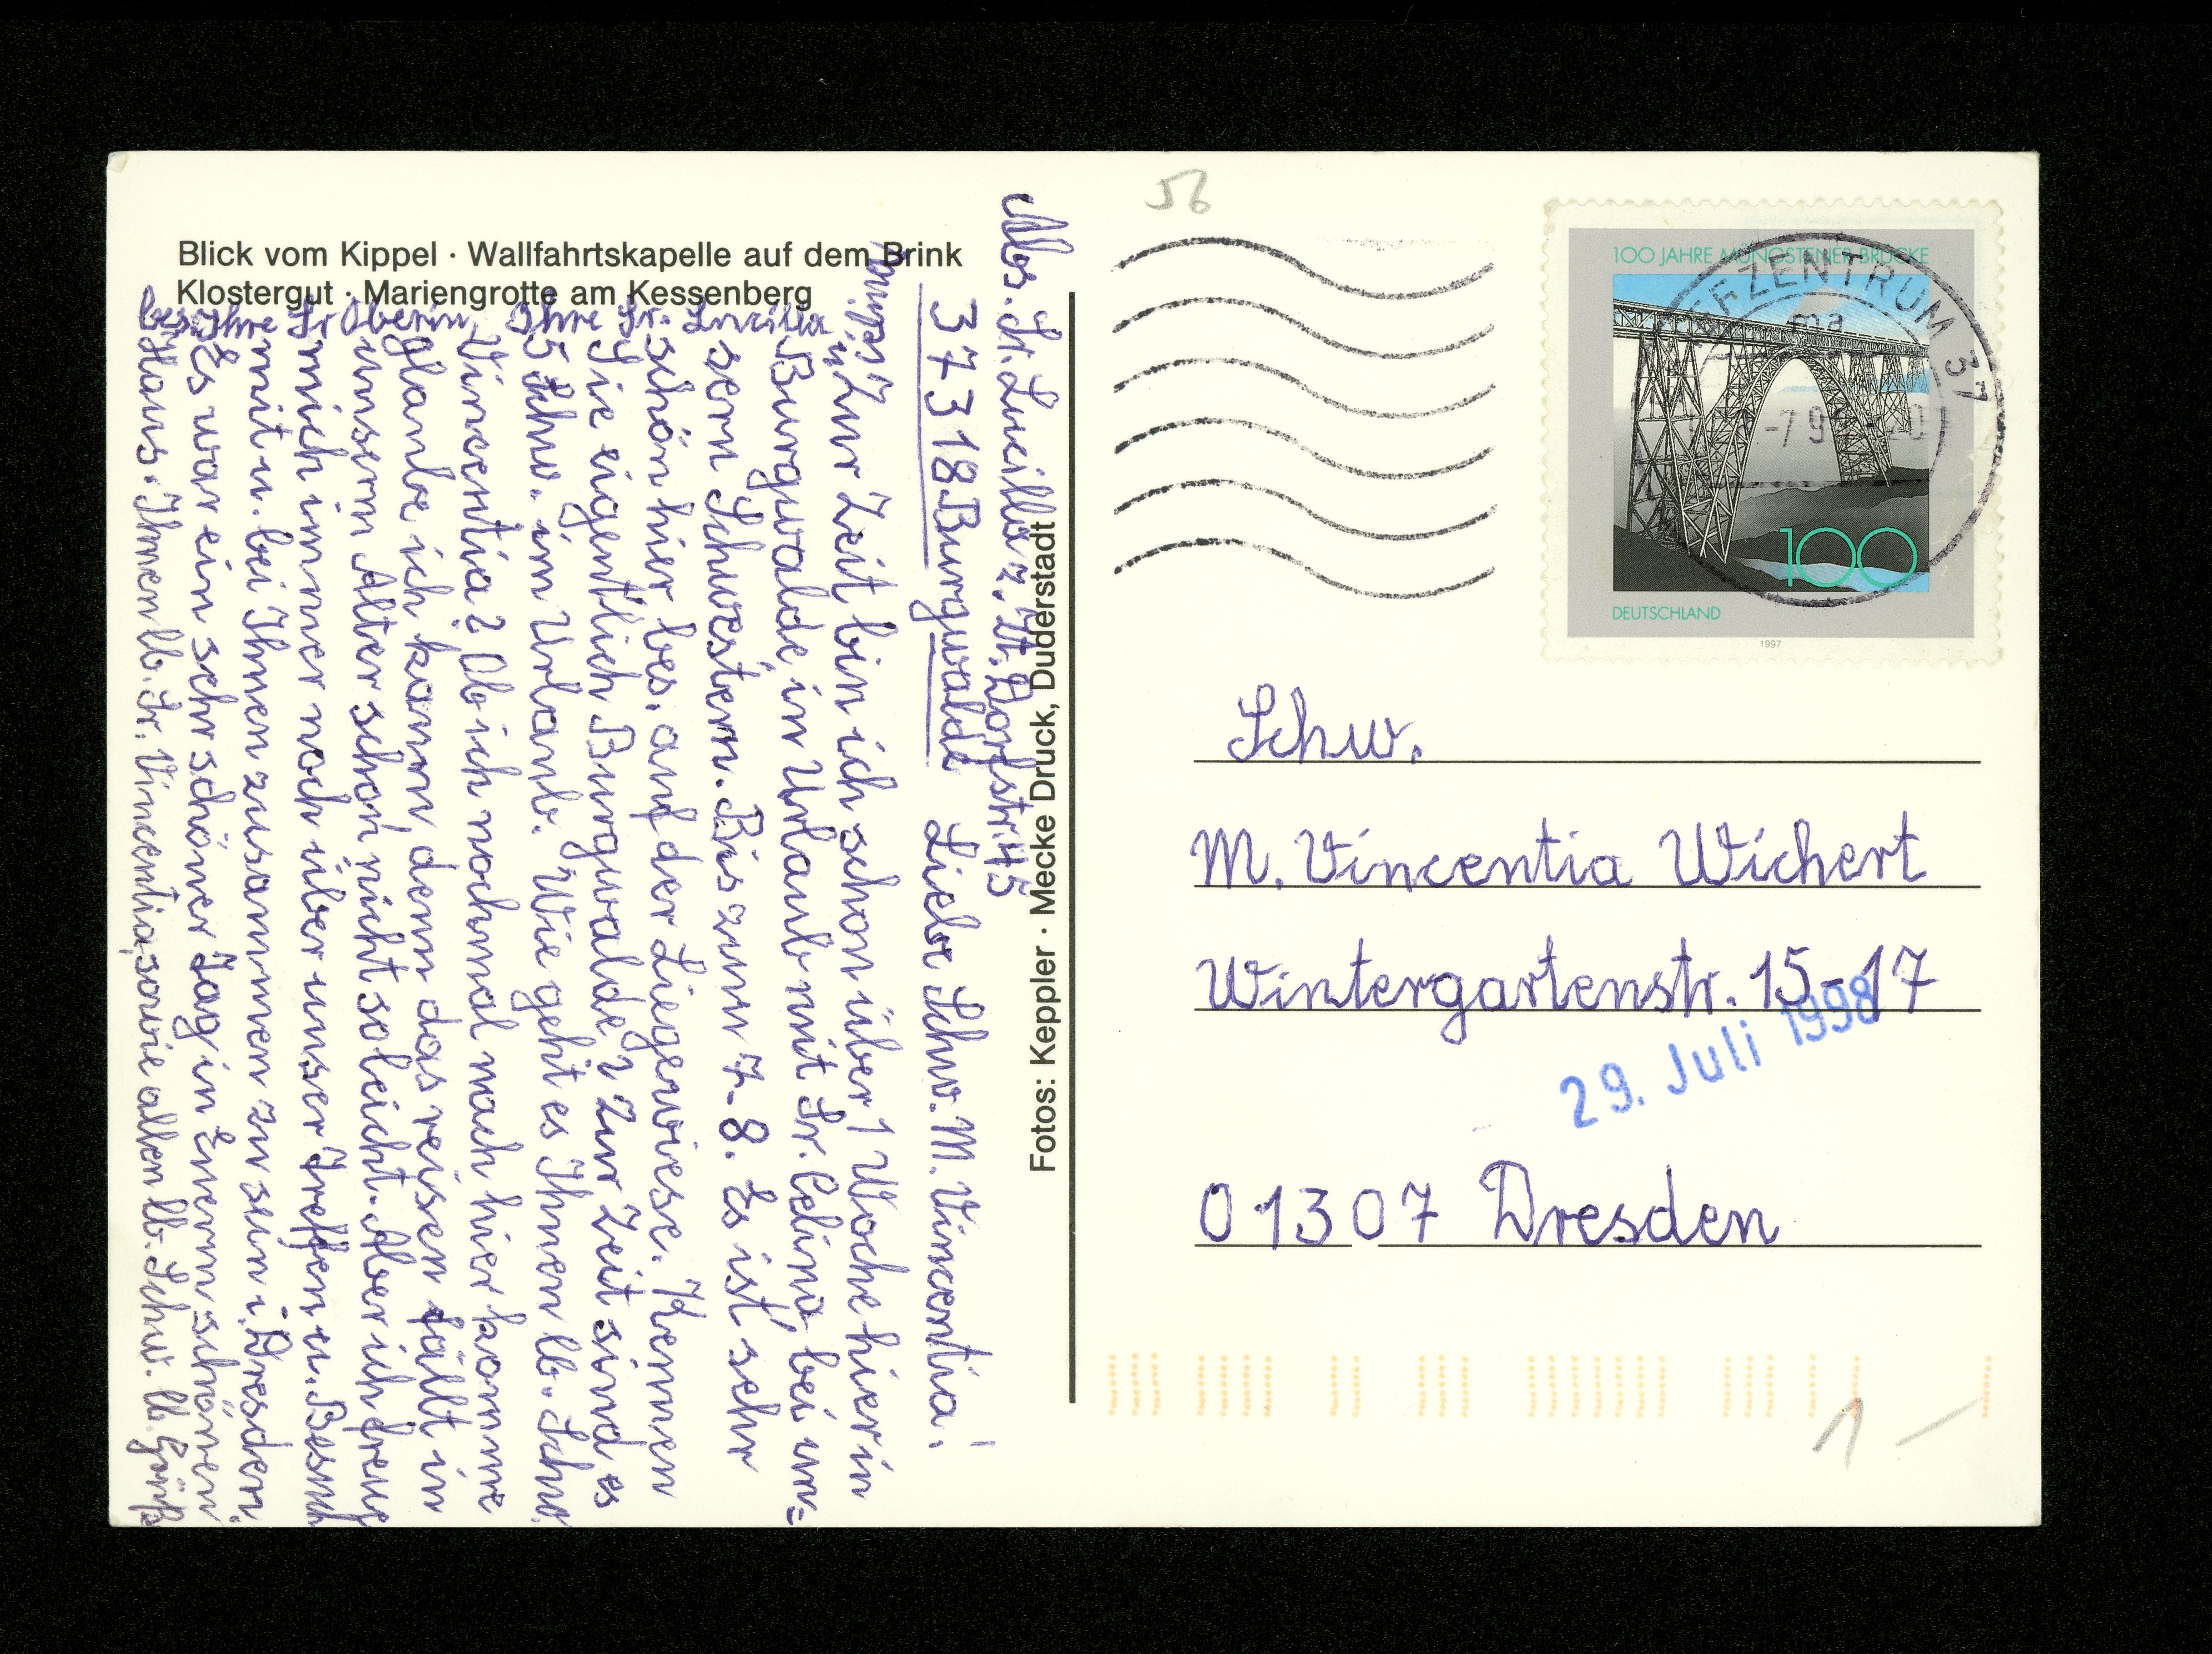 Blick vom Kippel · Wallfahrtskapelle auf dem Brink
Klostergut · Mariengrotte am Kessenberg
Abs. Sr. Lucilla z. Zt. Dorfstr. 45
37318 Burgwalde
Liebe Schw. M. Vincentia!
Zur Zeit bin ich schon über 1 Woche hier in
Burgwalde, in Urlaub mit Sr. Celina, bei un=
sern Schwestern. Bis zum 7.8. Es ist sehr
schön hier, bes. auf der Liegewiese. Kennen
Sie eigentlich Burgwalde? Zur Zeit sind es
5 Schw. im Urlaub. Wie geht es Ihnen lb. Schw.
Vincentia? Ob ich nochmal nach hier komme
glaube ich kaum, denn das reisen fällt in
unserm Alter schon nicht so leicht. Aber ich freue
mich immer noch über unser Treffen u. Besuch
mit u. bei Ihnen zusammen zu sein i. Dresden.
Es war ein sehr schöner Tag in Eurem schönen
Haus. Ihnen lb. Sr. Vincentia, sowie allen lb. Schw. lb. Grüße
bes. Ihre Sr Oberin, Ihre Sr. Lucilla
Fotos: Keppler · Mecke Druck, Duderstadt
56
100 JAHRE MÜNGSTENER BRÜCKE
100
DEUTSCHLAND
1997
ZENTRUM 37
ma
Schw.
M. Vincentia Wichert
Wintergartenstr. 15-17
29. Juli 1998
01307 Dresden
1 –